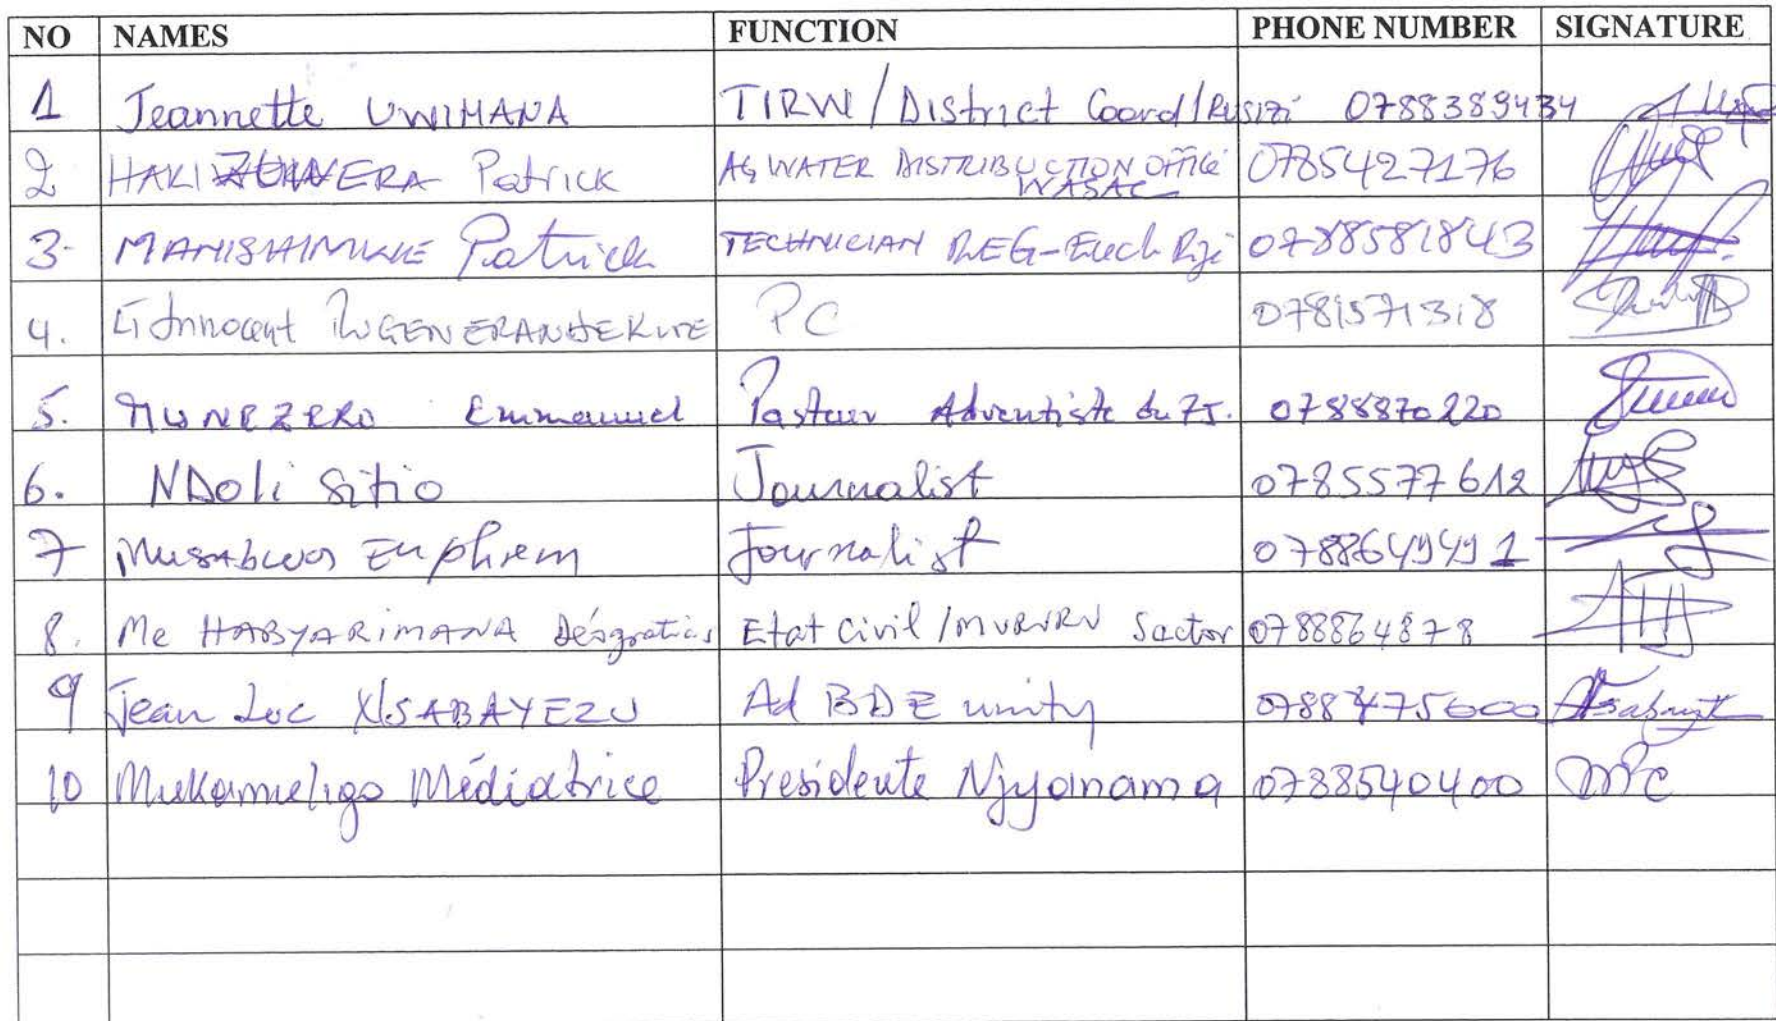 NO NAMES FUNCTION PHONE NUMBER SIGNATURE
1 Jeannette UWIMANA TIRW/District Coord/Rusizi 0788389434
2 Patrick AG WATER DISTRIBUCTION OFFICE 0785427176
WASAC
3- MANISHIMWE Patrick TECHNICIAN REG- 0788581843
4. Innocent PC
5. MUNEZERO Emmanuel Pasteur Adventiste du 7J. 0788870220
6. NDoli Sitio Journalist 0785577612
7 Musabwa Euphrem Journalist 0788649491
8. Me HABYARIMANA Déogratias Etat civil/MURURU Sector 0788864878
9 Jean Luc NSABAYEZU Ad BDE unity
10 Mukamuligo Médiatrice Presidente Njyanama 0788540400